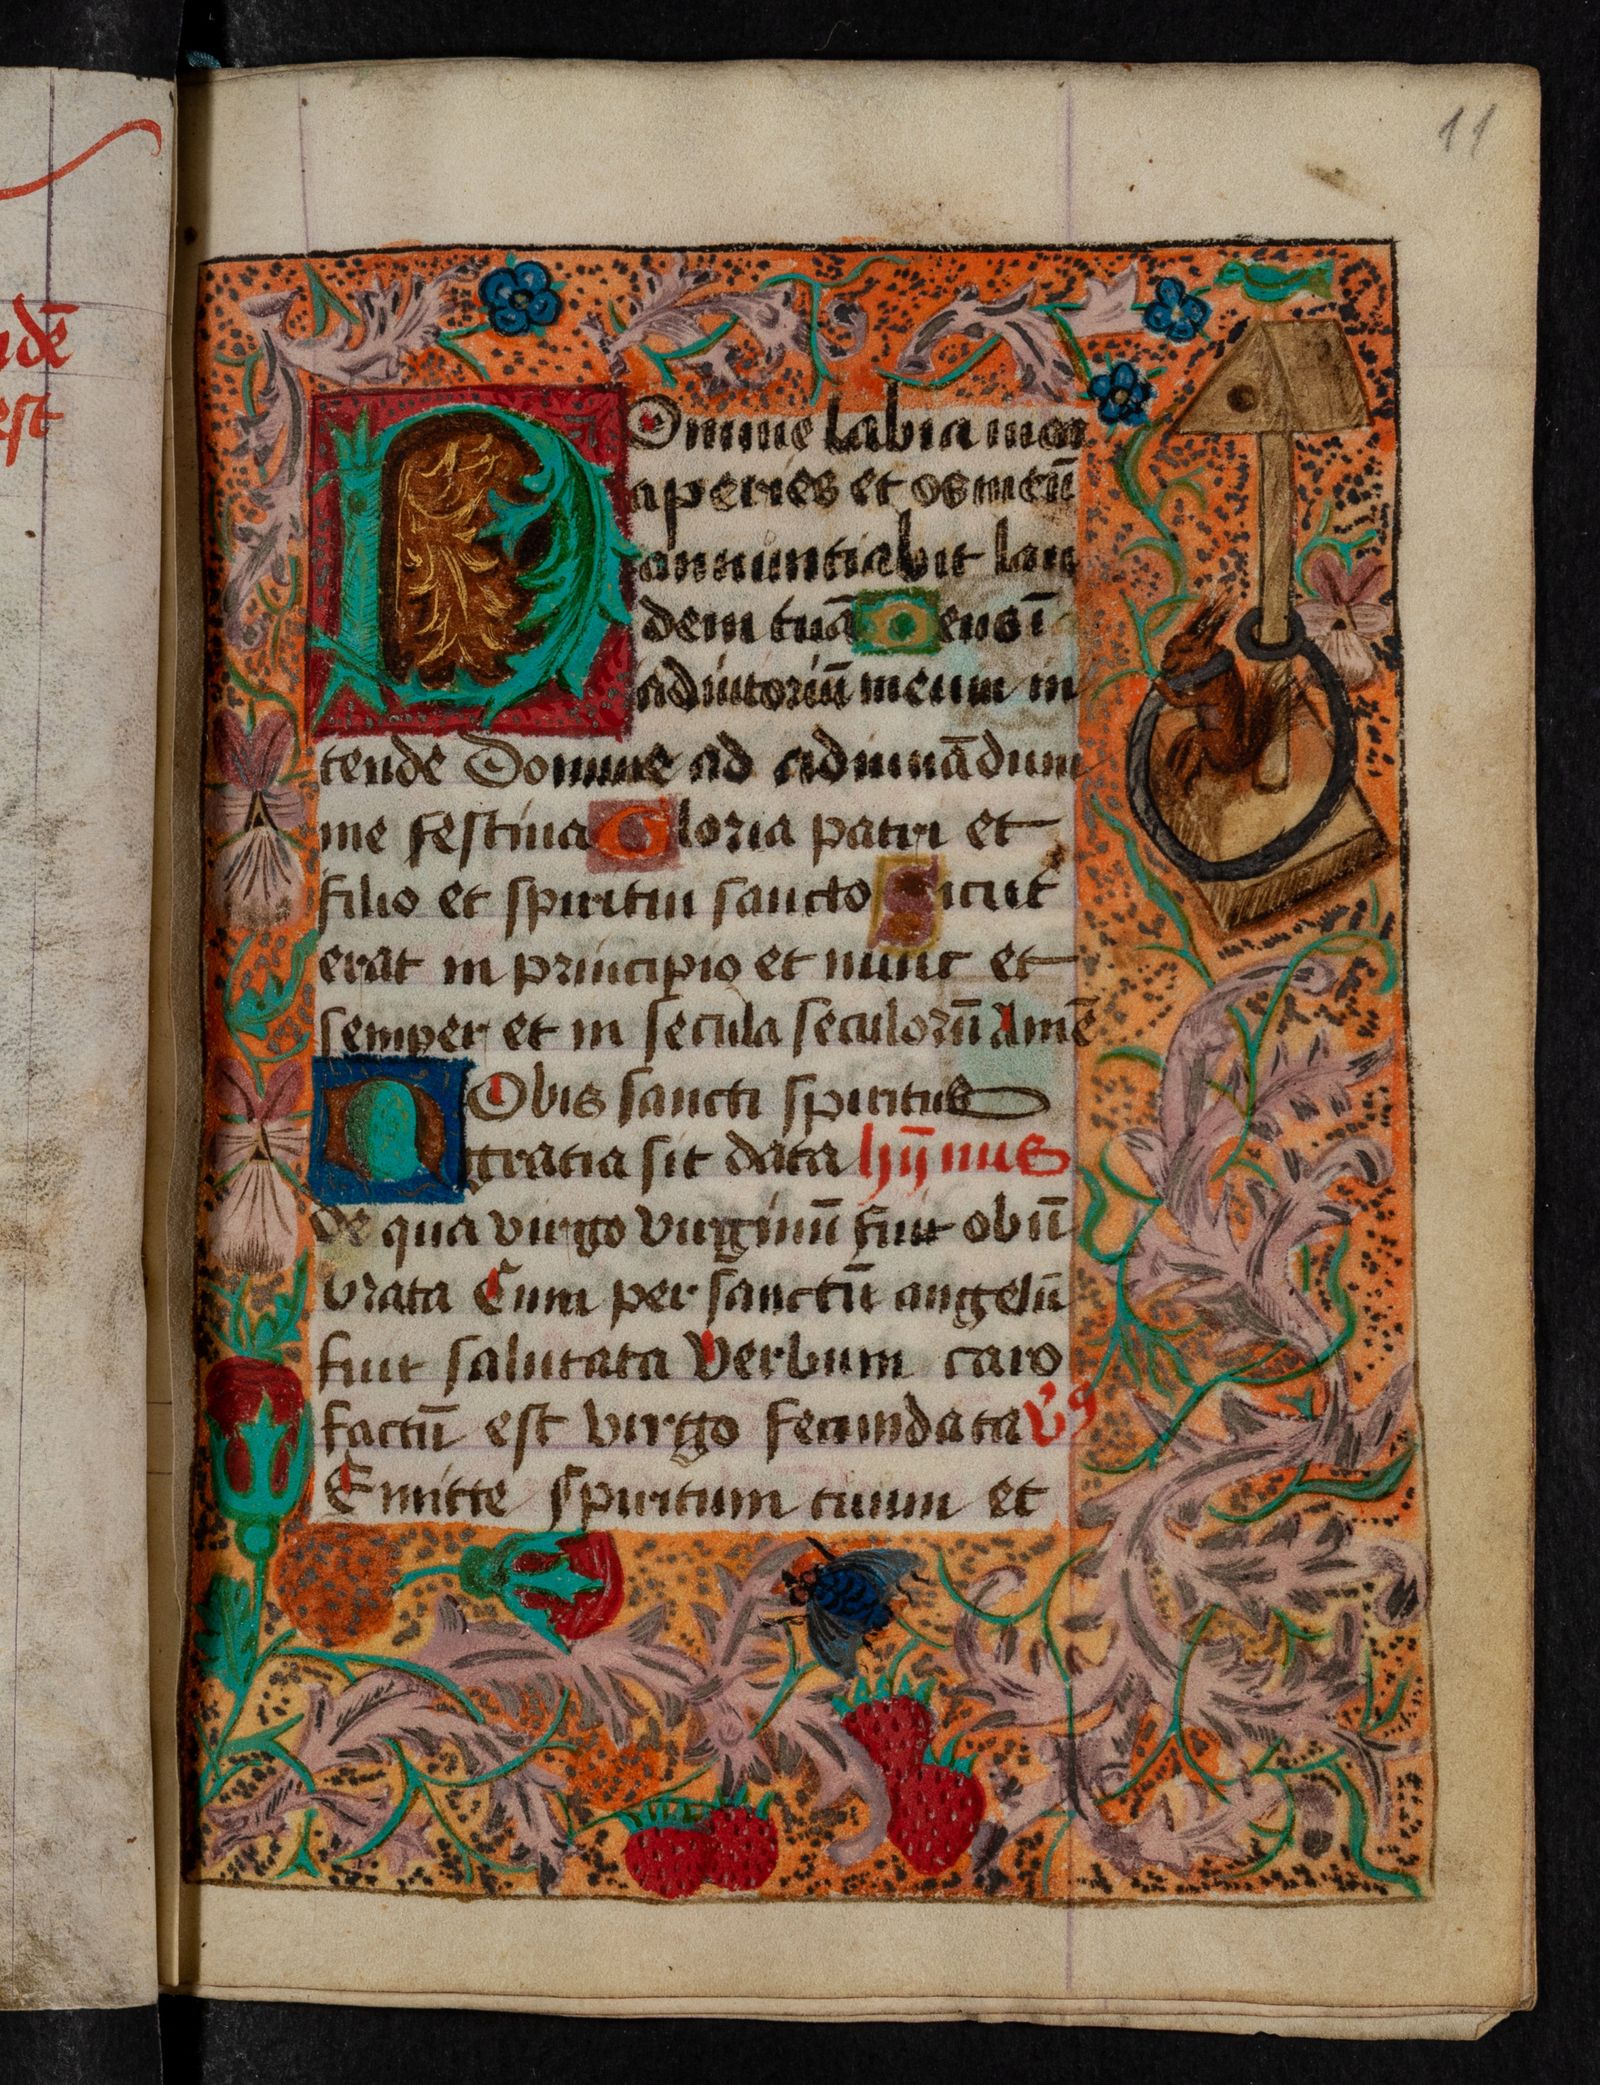 11
dē
est
Domine labia mea
aperies et os meū
annuntiabit lau
dem tuā Deus ī
adiutoriū meum in
tende Domine ad adiuuādum
me festina Gloria patri et
filio et spiritui sancto Sicut
erat in principio et nunc et
semper et in secula seculorū Amē
NObis sancti spiritus
gratia sit data hÿmnus
de qua virgo virginū fuit obū
brata Cum per sanctū angelū
fuit salutata Verbum caro
factū est virgo fecundata Vs
Emitte spiritum tuum et